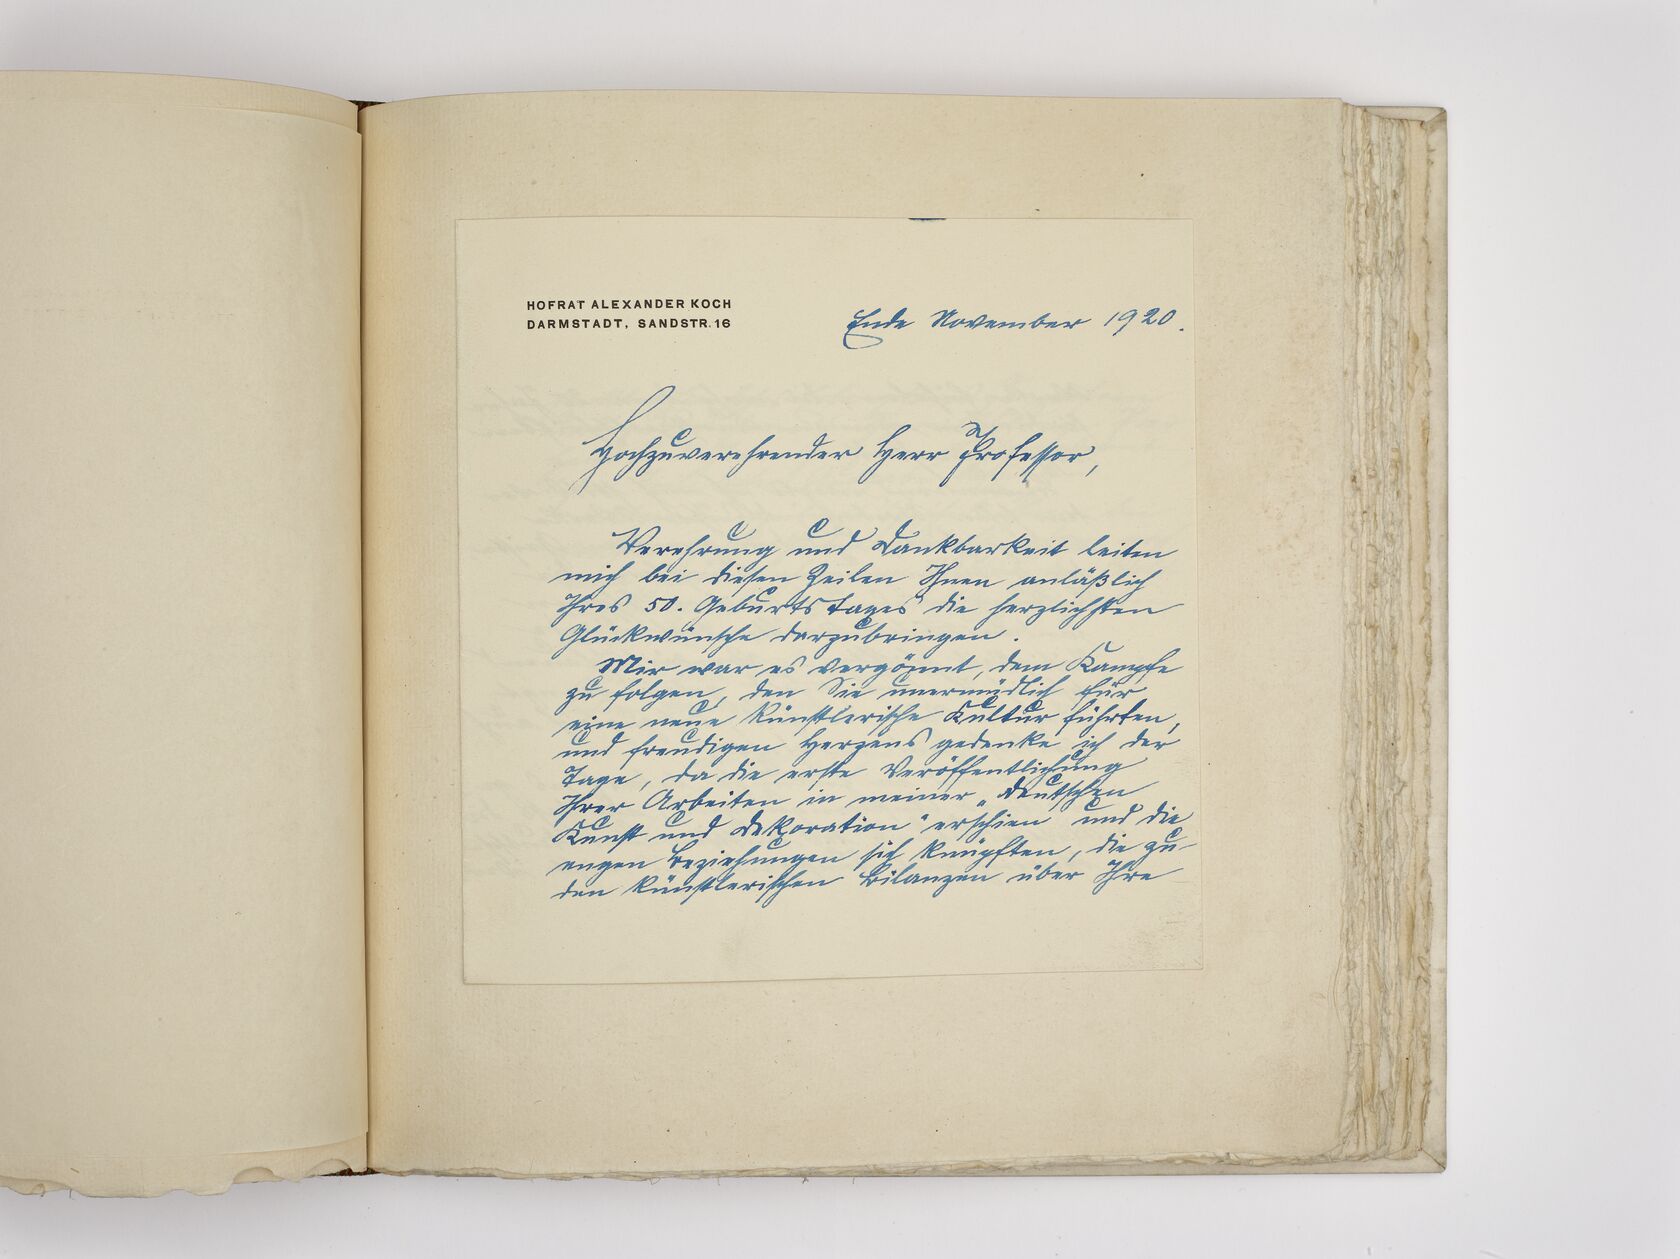 HOFRAT ALEXANDER KOCH
DARMSTADT, SANDSTR. 16
Ende November 1920.
Hochzuverehrender Herr Professor,
Verehrung und Dankbarkeit leiten
mich bei diesen Zeilen Ihnen anläßlich
Ihres 50. Geburtstages die herzlichsten
Glückwünsche darzubringen.
Mir war es vergönnt, dem Kampfe
zu folgen, den Sie unermüdlich für
eine neue künstlerische Kultur führten,
und freudigen Herzens gedenke ich der
Tage, da die erste Veröffentlichung
Ihrer Arbeiten in meiner „Deutschen
Kunst und Dekoration" erschien und die
engen Beziehungen sich knüpften, die zu
den künstlerischen Bilanzen über Ihre